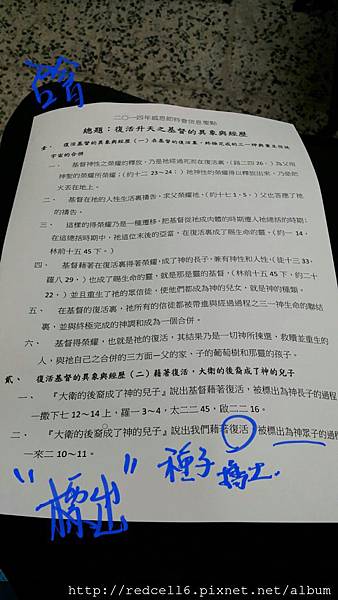 啓會
二〇一四年感恩節特會信息要點
總題：復活升天之基督的異象與經歷
壹、 復活基督的異象與經歷（一）在基督的復活裏，終極完成的三一神與重生信徒
宇宙的合併
一、 基督神性之榮耀的釋放，乃是祂經過死而在復活裏，（路二四26，）為父用
神聖的榮耀所榮耀；（約十二23～24；）祂神性的榮耀得以釋放出來，乃是把
火丟在地上。
二、 基督在祂的人性生活裏禱告，求父榮耀祂，（約十七1，5，）父也答應了祂
的禱告。
三、 這樣的得榮耀乃是一種遷移，把基督從祂成肉體的時期遷入祂總括的時期；
在這總括時期中，祂這位末後的亞當，在復活裏成了賜生命的靈，（約一14，
林前十五45下。）
四、 基督藉著在復活裏得著榮耀，成了神的長子，兼有神性和人性，（徒十三33，
羅八29，）也成了賜生命的靈，就是那是靈的基督，（林前十五45下，約二十
22，）並且重生了祂的眾信徒，使他們都成為神的兒女，就是神的種類。
五、 在基督的復活裏，祂所有的信徒都被帶進與經過過程之三一神生命的聯結
裏，並與終極完成的神調和成為一個合併。
六、 基督得榮耀，也就是祂的復活，其結果乃是一切神所揀選、救贖並重生的
人，與祂自己之合併的三方面－父的家、子的葡萄樹和那靈的孩子。
貳、 復活基督的異象與經歷（二）藉著復活，大衛的後裔成了神的兒子
一、 『大衛的後裔成了神的兒子』說出基督藉著復活，被標出為神長子的過程
—撒下七12～14上，羅一3～4，太二二45，啟二二16。
二、 『大衛的後裔成了神的兒子』說出我們藉著復活，被標出為神眾子的過程
—來二10～11。
"標出" 種子
http://redcell16.pixnet.net/album